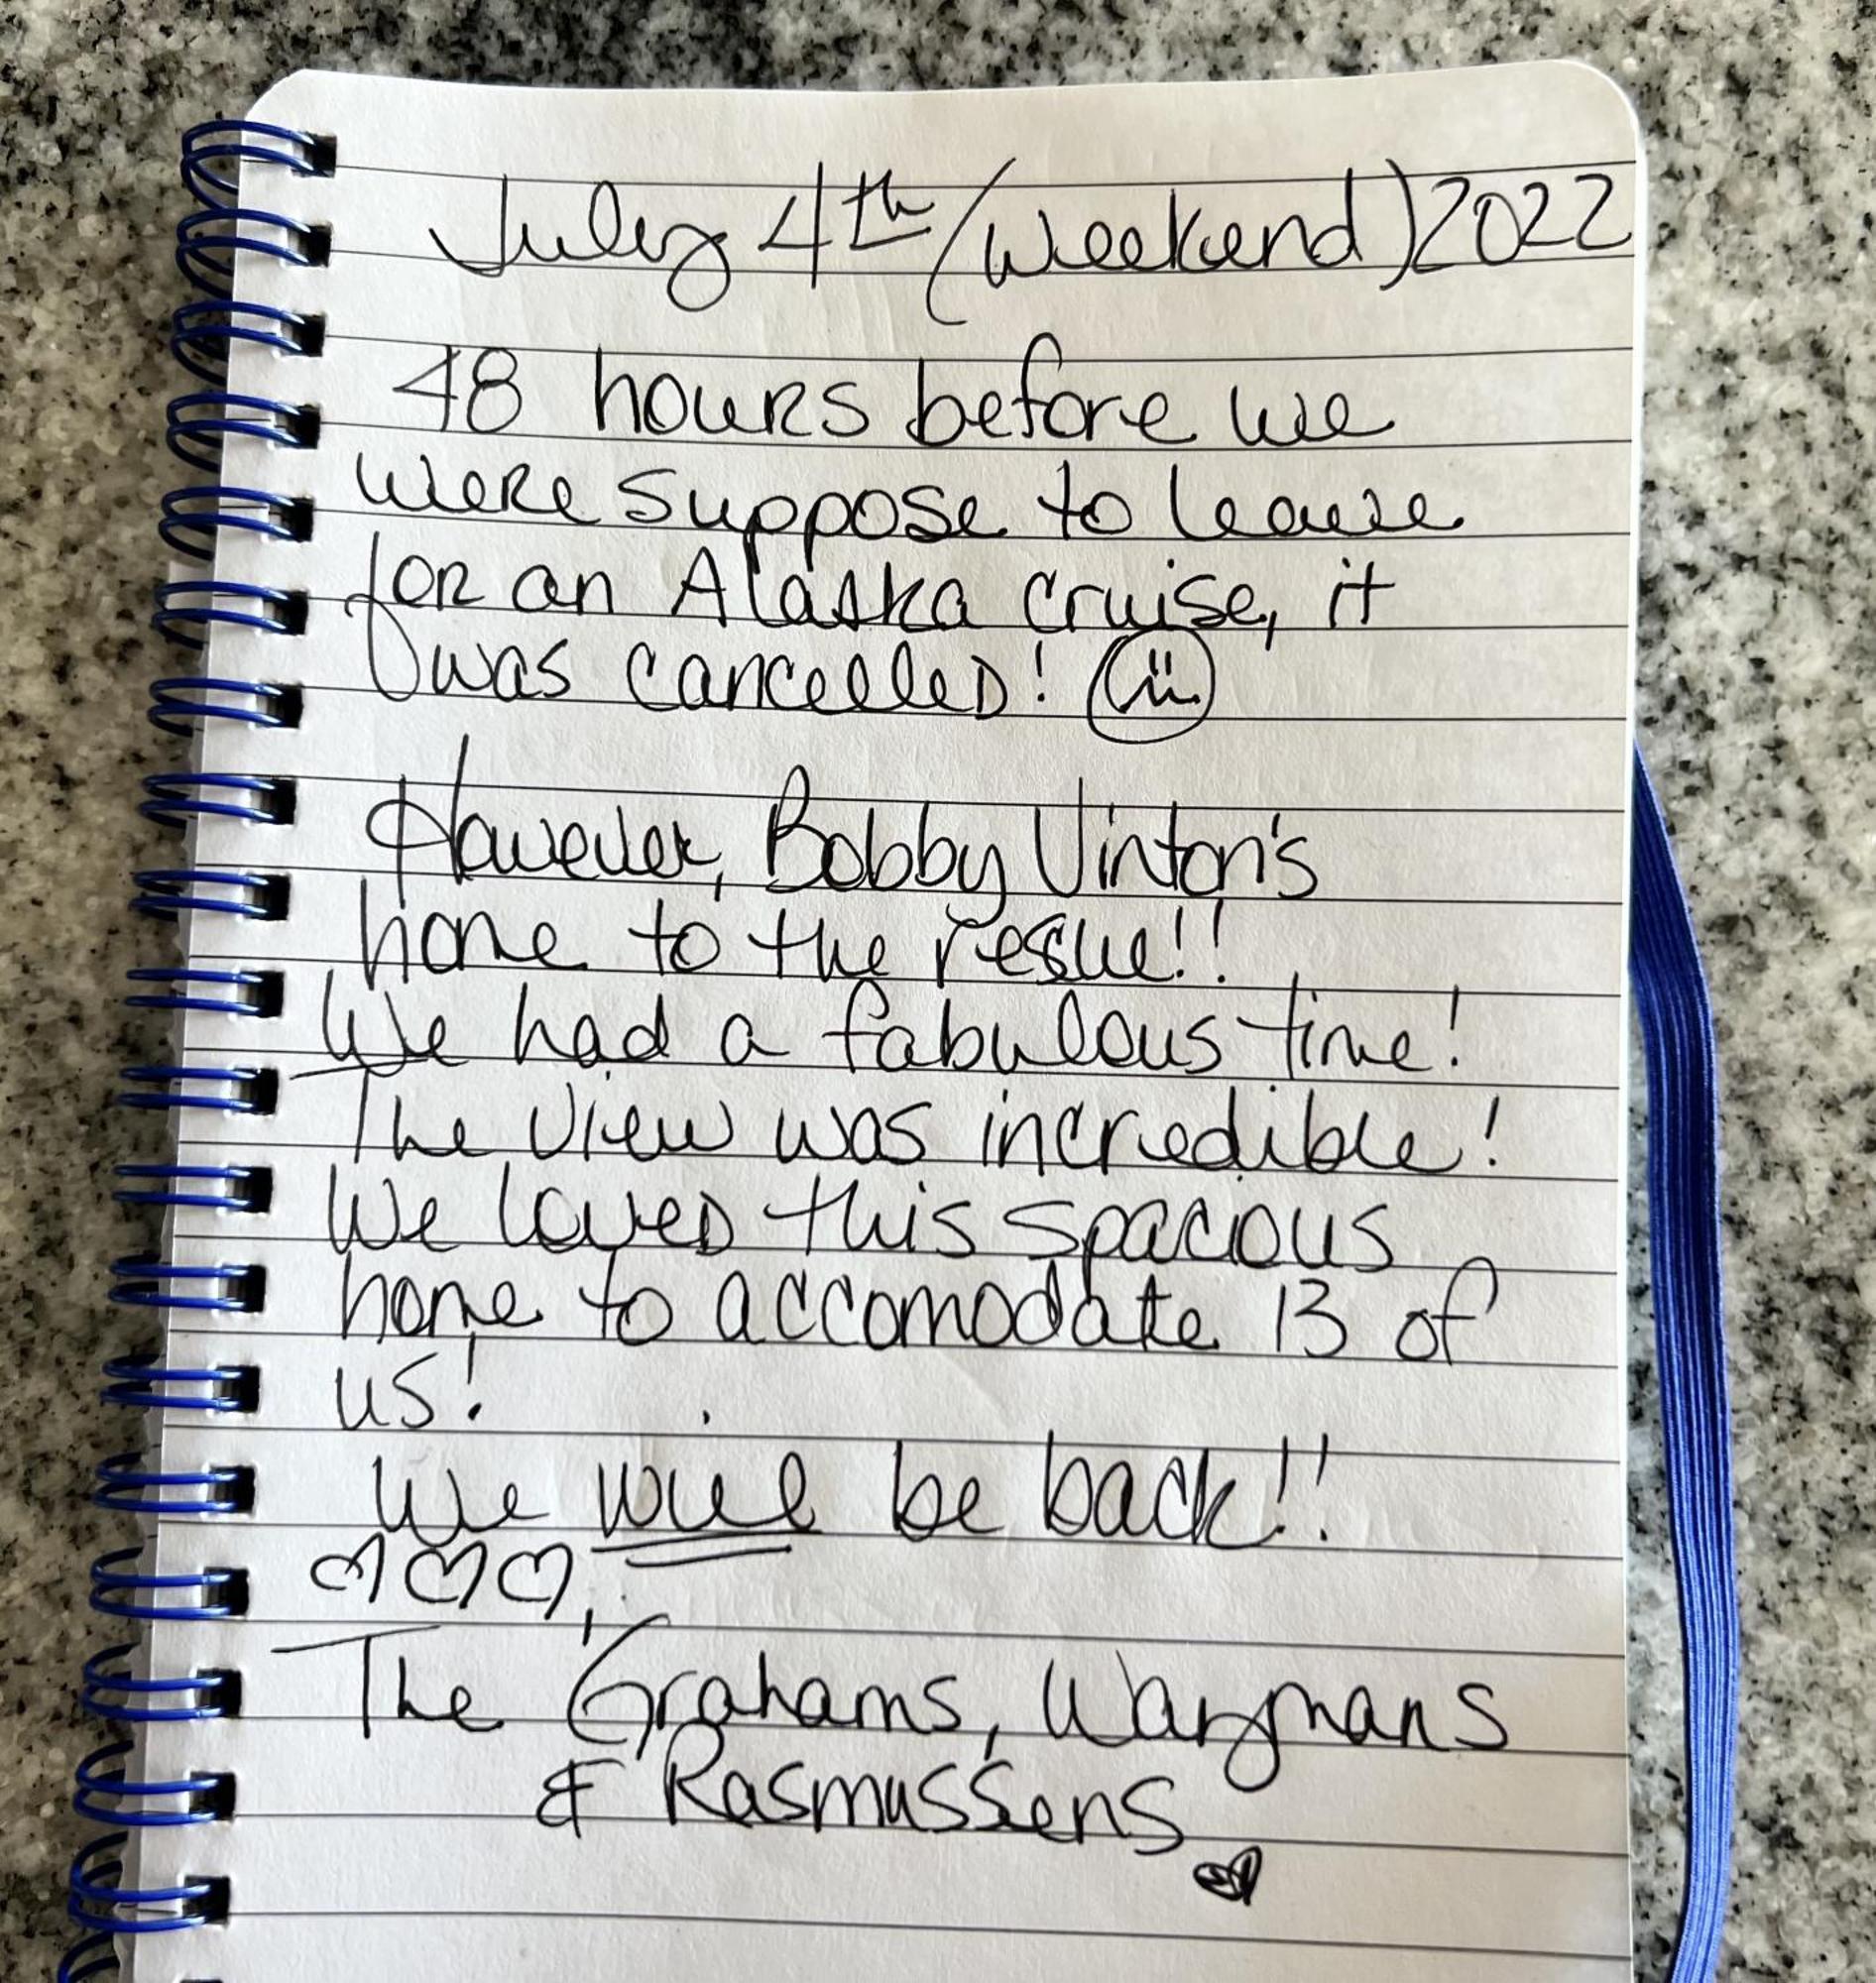 July 4th (Weekend) 2022
48 hours before we
were suppose to leave
for an Alaska cruise, it
was cancelled!
However, Bobby Vinton's
home to the rescue!!
We had a fabulous time!
The view was incredible!
We loved this spacious
home to accomodate 13 of
us!
We will be back!!
The Grahams, Wargmans
& Rasmussens